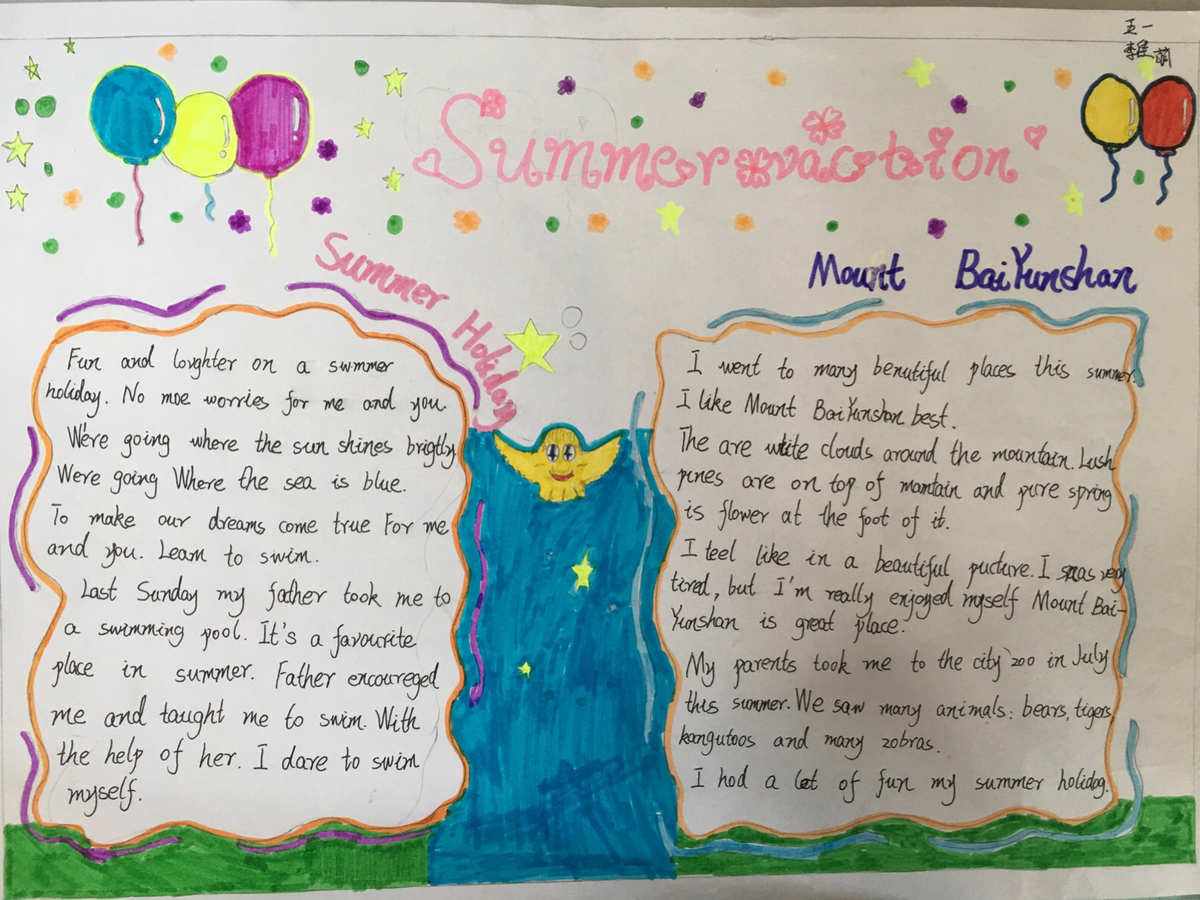 五一
李雅萌
Summer vaction
Summer Holiday
Fun and loughter on a swmmer
holiday. No moe worries for me and you.
We're going where the sun shines brigtly
We're going Where the sea is blue.
To make our dreams come true For me
and you. Learn to swim.
Last Sunday my father took me to
a swimming pool. It's a favourite
place in summer. Father encoureged
me and taught me to swim. With
the help of her. I dare to swim
myself.
Mount BaiYunshan
I went to many benutiful places this summer.
I like Mount BaiYunshan best.
The are white clouds around the mountain. Lush
pines are on top of mantain and pure spring
is flower at the foot of it.
I teel like in a beautiful pucture. I was very
tired, but I'm really enjoyed myself Mount Bai-
Yunshan is great place.
My parents took me to the city zoo in July
this summer. We saw many animals: bears, tigers,
kangutoos and many zobras.
I hod a lot of fun my summer holidag.